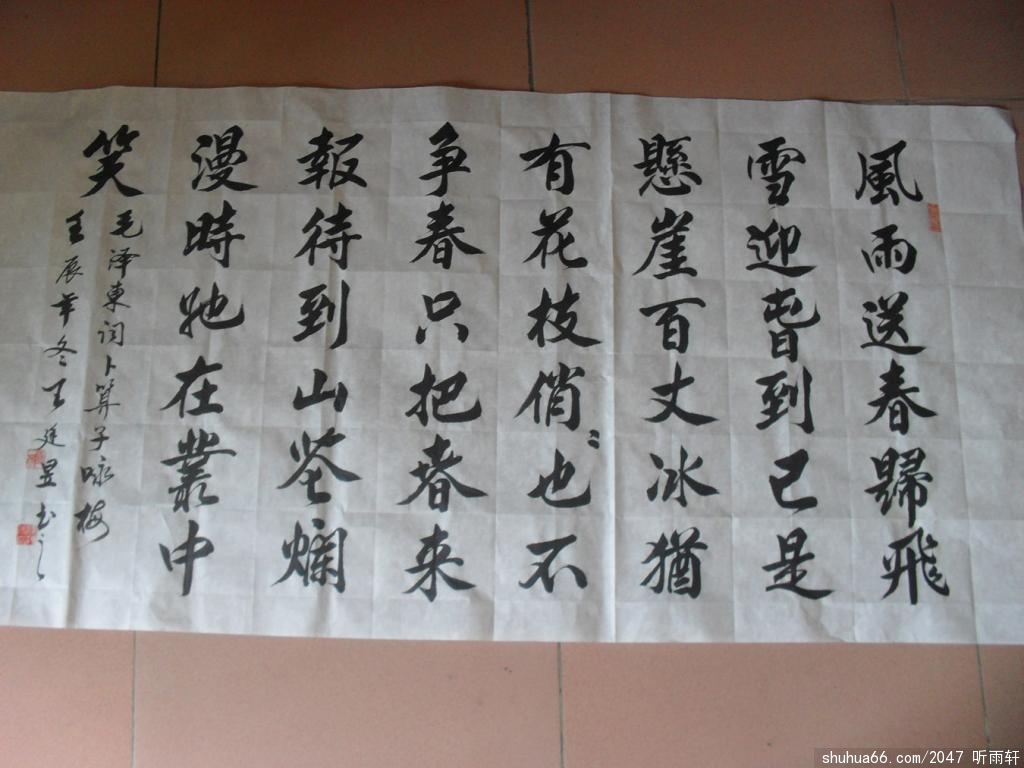 風雨送春歸飛
雪迎旾到已是
懸崖百丈冰猶
有花枝俏〻也不
争春只把春来
報待到山花爛
漫時她在叢中
笑
毛泽東词卜算子咏梅
壬辰年冬王廷昱书之
shuhua66.com/2047 听雨轩